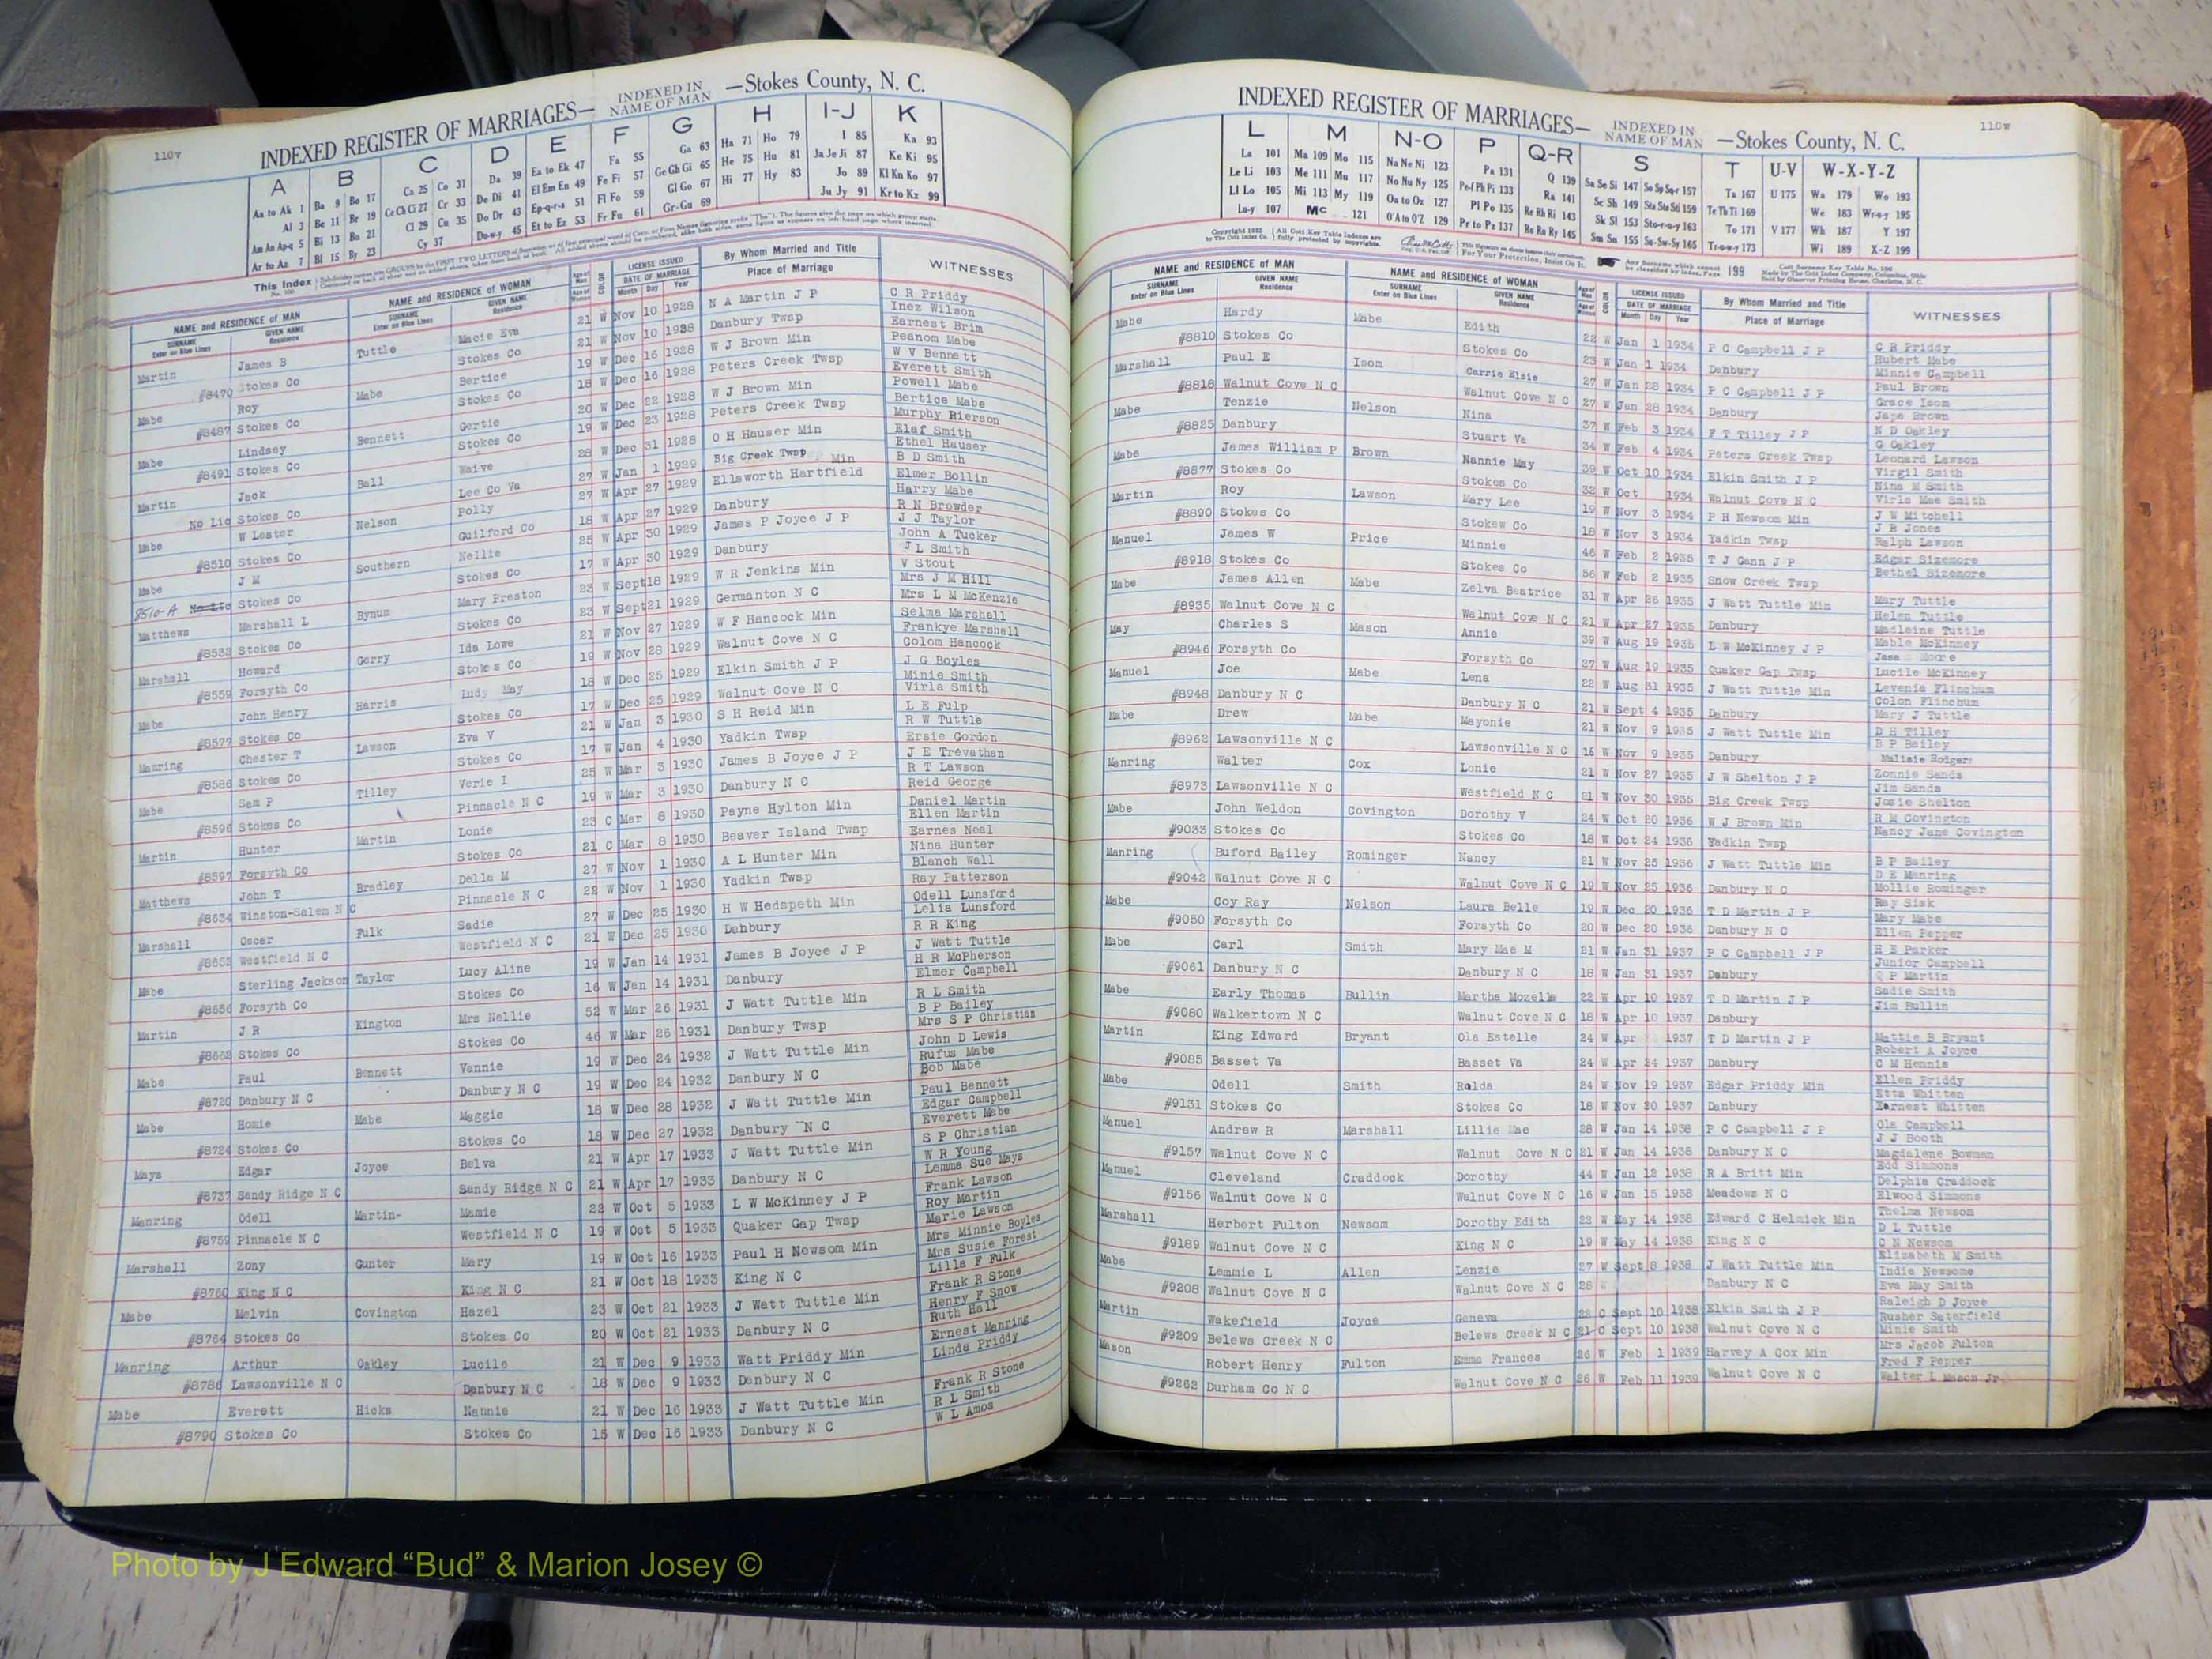 110v
INDEXED REGISTER OF MARRIAGES— INDEXED IN NAME OF MAN —Stokes County, N. C.
A B C D E F G H I-J K
Aa to Ak 1 Ba 9 Bo 17 Ca 25 Co 31 Da 39 Ea to Ek 47 Fa 55 Ga 63 Ha 71 Ho 79 I 85 Ka 93
Al 3 Be 11 Br 19 Ce Ch Ci 27 Cr 33 De Di 41 El Em En 49 Fe Fi 57 Ge Gh Gi 65 He 75 Hu 81 Ja Je Ji 87 Ke Ki 95
Am An Ap-q 5 Bi 13 Bu 21 Cl 29 Cu 35 Do Dr 43 Ep-q-r-s 51 Fl Fo 59 Gl Go 67 Hi 77 Hy 83 Jo 89 Kl Kn Ko 97
Ar to Az 7 Bl 15 By 23 Cy 37 Du-w-y 45 Et to Ez 53 Fr Fu 61 Gr-Gu 69 Ju Jy 91 Kr to Kz 99
NAME and RESIDENCE of MAN NAME and RESIDENCE of WOMAN LICENSE ISSUED By Whom Married and Title WITNESSES
SURNAME Enter on Blue Lines GIVEN NAME Residence SURNAME Enter on Blue Lines GIVEN NAME Residence Age of Man Age of Woman COLOR DATE OF MARRIAGE Month Day Year Place of Marriage
Martin James B Tuttle Macie Eva 21 W Nov 10 1928 N A Martin J P C R Priddy
Inez Wilson
#8470 Stokes Co Stokes Co 21 W Nov 10 1928 Danbury Twsp Earnest Brim
Mabe Roy Mabe Bertice 19 W Dec 16 1928 W J Brown Min Peanom Mabe
W V Bennett
#8487 Stokes Co Stokes Co 18 W Dec 16 1928 Peters Creek Twsp Everett Smith
Mabe Lindsey Bennett Gertie 20 W Dec 22 1928 W J Brown Min Powell Mabe
Bertice Mabe
#8491 Stokes Co Stokes Co 19 W Dec 23 1928 Peters Creek Twsp Murphy Rierson
Martin Jack Ball Waive 28 W Dec 31 1928 O H Hauser Min Elaf Smith
Ethel Hauser
No Lic Stokes Co Lee Co Va 27 W Jan 1 1929 Big Creek Twsp B D Smith
Mabe W Lester Nelson Polly 27 W Apr 27 1929 Ellsworth Hartfield Min Elmer Bollin
Harry Mabe
#8510 Stokes Co Guilford Co 18 W Apr 27 1929 Danbury R N Browder
Mabe J M Southern Nellie 25 W Apr 30 1929 James P Joyce J P J J Taylor
John A Tucker
8510-A No Lic Stokes Co Stokes Co 17 W Apr 30 1929 Danbury J L Smith
Matthews Marshall L Bynum Mary Preston 23 W Sept 18 1929 W R Jenkins Min V Stout
Mrs J M Hill
#8532 Stokes Co Stokes Co 23 W Sept 21 1929 Germanton N C Mrs L M McKenzie
Marshall Howard Gerry Ida Lowe 21 W Nov 27 1929 W F Hancock Min Selma Marshall
Frankye Marshall
#8559 Forsyth Co Stokes Co 19 W Nov 28 1929 Walnut Cove N C Colom Hancock
Mabe John Henry Harris Ludy May 18 W Dec 25 1929 Elkin Smith J P J G Boyles
Minie Smith
#8577 Stokes Co Stokes Co 17 W Dec 25 1929 Walnut Cove N C Virla Smith
Manring Chester T Lawson Eva V 21 W Jan 3 1930 S H Reid Min L E Fulp
R W Tuttle
#8586 Stokes Co Stokes Co 17 W Jan 4 1930 Yadkin Twsp Ersie Gordon
Mabe Sam P Tilley Verie I 25 W Mar 3 1930 James B Joyce J P J E Trevathan
R T Lawson
#8596 Stokes Co Pinnacle N C 19 W Mar 3 1930 Danbury N C Reid George
Martin Hunter Martin Lonie 23 C Mar 8 1930 Payne Hylton Min Daniel Martin
Ellen Martin
#8597 Forsyth Co Stokes Co 21 C Mar 8 1930 Beaver Island Twsp Earnes Neal
Matthews John T Bradley Della M 27 W Nov 1 1930 A L Hunter Min Nina Hunter
Blanch Wall
#8634 Winston-Salem N C Pinnacle N C 22 W Nov 1 1930 Yadkin Twsp Ray Patterson
Marshall Oscar Fulk Sadie 27 W Dec 25 1930 H W Hedspeth Min Odell Lunsford
Lelia Lunsford
#8652 Westfield N C Westfield N C 21 W Dec 25 1930 Danbury R R King
Mabe Sterling Jackson Taylor Lucy Aline 19 W Jan 14 1931 James B Joyce J P J Watt Tuttle
H R McPherson
#8656 Forsyth Co Stokes Co 16 W Jan 14 1931 Danbury Elmer Campbell
Martin J R Kington Mrs Nellie 52 W Mar 26 1931 J Watt Tuttle Min R L Smith
B P Bailey
#8662 Stokes Co Stokes Co 46 W Mar 26 1931 Danbury Twsp Mrs S P Christian
Mabe Paul Bennett Vannie 19 W Dec 24 1932 J Watt Tuttle Min John D Lewis
Rufus Mabe
#8720 Danbury N C Danbury N C 19 W Dec 24 1932 Danbury N C Bob Mabe
Mabe Homie Mabe Maggie 18 W Dec 28 1932 J Watt Tuttle Min Paul Bennett
Edgar Campbell
#8724 Stokes Co Stokes Co 18 W Dec 27 1932 Danbury N C Everett Mabe
Mays Edgar Joyce Belva 21 W Apr 17 1933 J Watt Tuttle Min S P Christian
W R Young
#8737 Sandy Ridge N C Sandy Ridge N C 21 W Apr 17 1933 Danbury N C Lemma Sue Mays
Manring Odell Martin- Mamie 22 W Oct 5 1933 L W McKinney J P Frank Lawson
Roy Martin
#8759 Pinnacle N C Westfield N C 19 W Oct 5 1933 Quaker Gap Twsp Marie Lawson
Marshall Zony Gunter Mary 19 W Oct 16 1933 Paul H Newsom Min Mrs Minnie Boyles
Mrs Susie Forest
#8760 King N C King N C 21 W Oct 18 1933 King N C Lilla F Fulk
Mabe Melvin Covington Hazel 23 W Oct 21 1933 J Watt Tuttle Min Frank R Stone
Henry F Snow
#8764 Stokes Co Stokes Co 20 W Oct 21 1933 Danbury N C Ruth Hall
Manring Arthur Oakley Lucile 21 W Dec 9 1933 Watt Priddy Min Ernest Manring
Linda Priddy
#8786 Lawsonville N C Danbury N C 18 W Dec 9 1933 Danbury N C
Mabe Everett Hicks Nannie 21 W Dec 16 1933 J Watt Tuttle Min Frank R Stone
R L Smith
#8790 Stokes Co Stokes Co 15 W Dec 16 1933 Danbury N C W L Amos
110w
INDEXED REGISTER OF MARRIAGES— INDEXED IN NAME OF MAN —Stokes County, N. C.
L M N-O P Q-R S T U-V W-X-Y-Z
La 101 Ma 109 Mo 115 Na Ne Ni 123 Pa 131 Q 139 Sa Se Si 147 So Sp Sq-r 157 Ta 167 U 175 Wa 179 Wo 193
Le Li 103 Me 111 Mu 117 No Nu Ny 125 Pe-f Ph Pi 133 Ra 141 Sc Sh 149 Sta Ste Sti 159 Te Th Ti 169 We 183 Wr-u-y 195
Ll Lo 105 Mi 113 My 119 Oa to Oz 127 Pl Po 135 Re Rh Ri 143 Sk Sl 153 Sto-r-u-y 163 To 171 V 177 Wh 187 Y 197
Lu-y 107 Mc 121 O'A to O'Z 129 Pr to Pz 137 Ro Ru Ry 145 Sm Sn 155 Su-Sw-Sy 165 Tr-u-w-y 173 Wi 189 X-Z 199
NAME and RESIDENCE of MAN NAME and RESIDENCE of WOMAN LICENSE ISSUED By Whom Married and Title WITNESSES
SURNAME Enter on Blue Lines GIVEN NAME Residence SURNAME Enter on Blue Lines GIVEN NAME Residence Age of Man Age of Woman COLOR DATE OF MARRIAGE Month Day Year Place of Marriage
Mabe Hardy Mabe Edith 22 W Jan 1 1934 P C Campbell J P C R Priddy
Hubert Mabe
#8810 Stokes Co Stokes Co 23 W Jan 1 1934 Danbury Minnie Campbell
Marshall Paul E Isom Carrie Elsie 27 W Jan 28 1934 P C Campbell J P Paul Brown
Grace Isom
#8818 Walnut Cove N C Walnut Cove N C 27 W Jan 28 1934 Danbury Jape Brown
Mabe Tenzie Nelson Nina 37 W Feb 3 1934 F T Tilley J P N D Oakley
G Oakley
#8825 Danbury Stuart Va 34 W Feb 4 1934 Peters Creek Twsp Leonard Lawson
Mabe James William P Brown Nannie May 39 W Oct 10 1934 Elkin Smith J P Virgil Smith
Nina M Smith
#8877 Stokes Co Stokes Co 32 W Oct 1934 Walnut Cove N C Virla Mae Smith
Martin Roy Lawson Mary Lee 19 W Nov 3 1934 P H Newsom Min J W Mitchell
J R Jones
#8890 Stokes Co Stokew Co 18 W Nov 3 1934 Yadkin Twsp Ralph Lawson
Manuel James W Price Minnie 46 W Feb 2 1935 T J Gann J P Edgar Sizemore
Bethel Sizemore
#8918 Stokes Co Stokes Co 56 W Feb 2 1935 Snow Creek Twsp
Mabe James Allen Mabe Zelva Beatrice 31 W Apr 26 1935 J Watt Tuttle Min Mary Tuttle
Helen Tuttle
#8935 Walnut Cove N C Walnut Cove N C 21 W Apr 27 1935 Danbury Madleine Tuttle
May Charles S Mason Annie 39 W Aug 19 1935 L W McKinney J P Mable McKinney
Moore
#8946 Forsyth Co Forsyth Co 27 W Aug 19 1935 Quaker Gap Twsp Lucile McKinney
Manuel Joe Mabe Lena 22 W Aug 31 1935 J Watt Tuttle Min Levenia Flinchum
Colon Flinchum
#8948 Danbury N C Danbury N C 21 W Sept 4 1935 Danbury Mary J Tuttle
Mabe Drew Mabe Mayonie 21 W Nov 9 1935 J Watt Tuttle Min D H Tilley
B P Bailey
#8962 Lawsonville N C Lawsonville N C 16 W Nov 9 1935 Danbury Malisie Rodgers
Manring Walter Cox Lonie 21 W Nov 27 1935 J W Shelton J P Zonnie Sands
Jim Sands
#8973 Lawsonville N C Westfield N C 21 W Nov 30 1935 Big Creek Twsp Josie Shelton
Mabe John Weldon Covington Dorothy V 24 W Oct 20 1936 W J Brown Min R M Covington
Nancy Jane Covington
#9033 Stokes Co Stokes Co 18 W Oct 24 1936 Yadkin Twsp
Manring Buford Bailey Rominger Nancy 21 W Nov 25 1936 J Watt Tuttle Min B P Bailey
D E Manring
#9042 Walnut Cove N C Walnut Cove N C 19 W Nov 25 1936 Danbury N C Mollie Rominger
Mabe Coy Ray Nelson Laura Belle 19 W Dec 20 1936 T D Martin J P Ray Sisk
Mary Mabe
#9050 Forsyth Co Forsyth Co 20 W Dec 20 1936 Danbury N C Ellen Pepper
Mabe Carl Smith Mary Mae M 21 W Jan 31 1937 P C Campbell J P H E Parker
Junior Campbell
#9061 Danbury N C Danbury N C 18 W Jan 31 1937 Danbury Q P Martin
Mabe Early Thomas Bullin Martha Mozelle 22 W Apr 10 1937 T D Martin J P Sadie Smith
Jim Bullin
#9080 Walkertown N C Walnut Cove N C 18 W Apr 10 1937 Danbury
Martin King Edward Bryant Ola Estelle 24 W Apr 1937 T D Martin J P Mattie B Bryant
Robert A Joyce
#9085 Basset Va Basset Va 24 W Apr 24 1937 Danbury C M Hennis
Mabe Odell Smith Ralda 24 W Nov 19 1937 Edgar Priddy Min Ellen Priddy
Etta Whitten
#9131 Stokes Co Stokes Co 18 W Nov 20 1937 Danbury Earnest Whitten
Manuel Andrew R Marshall Lillie Mae 28 W Jan 14 1938 P C Campbell J P Ola Campbell
J J Booth
#9157 Walnut Cove N C Walnut Cove N C 21 W Jan 14 1938 Danbury N C Magdalene Bowman
Manuel Cleveland Craddock Dorothy 44 W Jan 12 1938 R A Britt Min Edd Simmons
Delphia Craddock
#9156 Walnut Cove N C Walnut Cove N C 16 W Jan 15 1938 Meadows N C Elwood Simmons
Marshall Herbert Fulton Newsom Dorothy Edith 22 W May 14 1938 Edward C Helmick Min Thelma Newsom
D L Tuttle
#9189 Walnut Cove N C King N C 19 W May 14 1938 King N C C N Newsom
Mabe Lemmie L Allen Lenzie 27 W Sept 8 1938 J Watt Tuttle Min Elizabeth M Smith
Indie Newsome
#9208 Walnut Cove N C Walnut Cove N C 28 W Danbury N C Eva May Smith
Martin Wakefield Joyce Geneva 22 C Sept 10 1938 Elkin Smith J P Raleigh D Joyce
Rusher Saterfield
#9209 Belews Creek N C Belews Creek N C 21 C Sept 10 1938 Walnut Cove N C Minie Smith
Mason Robert Henry Fulton Emma Frances 26 W Feb 1 1939 Harvey A Cox Min Mrs Jacob Fulton
Fred F Pepper
#9262 Durham Co N C Walnut Cove N C 26 W Feb 11 1939 Walnut Cove N C Walter L Mason Jr
Photo by J Edward “Bud” & Marion Josey ©